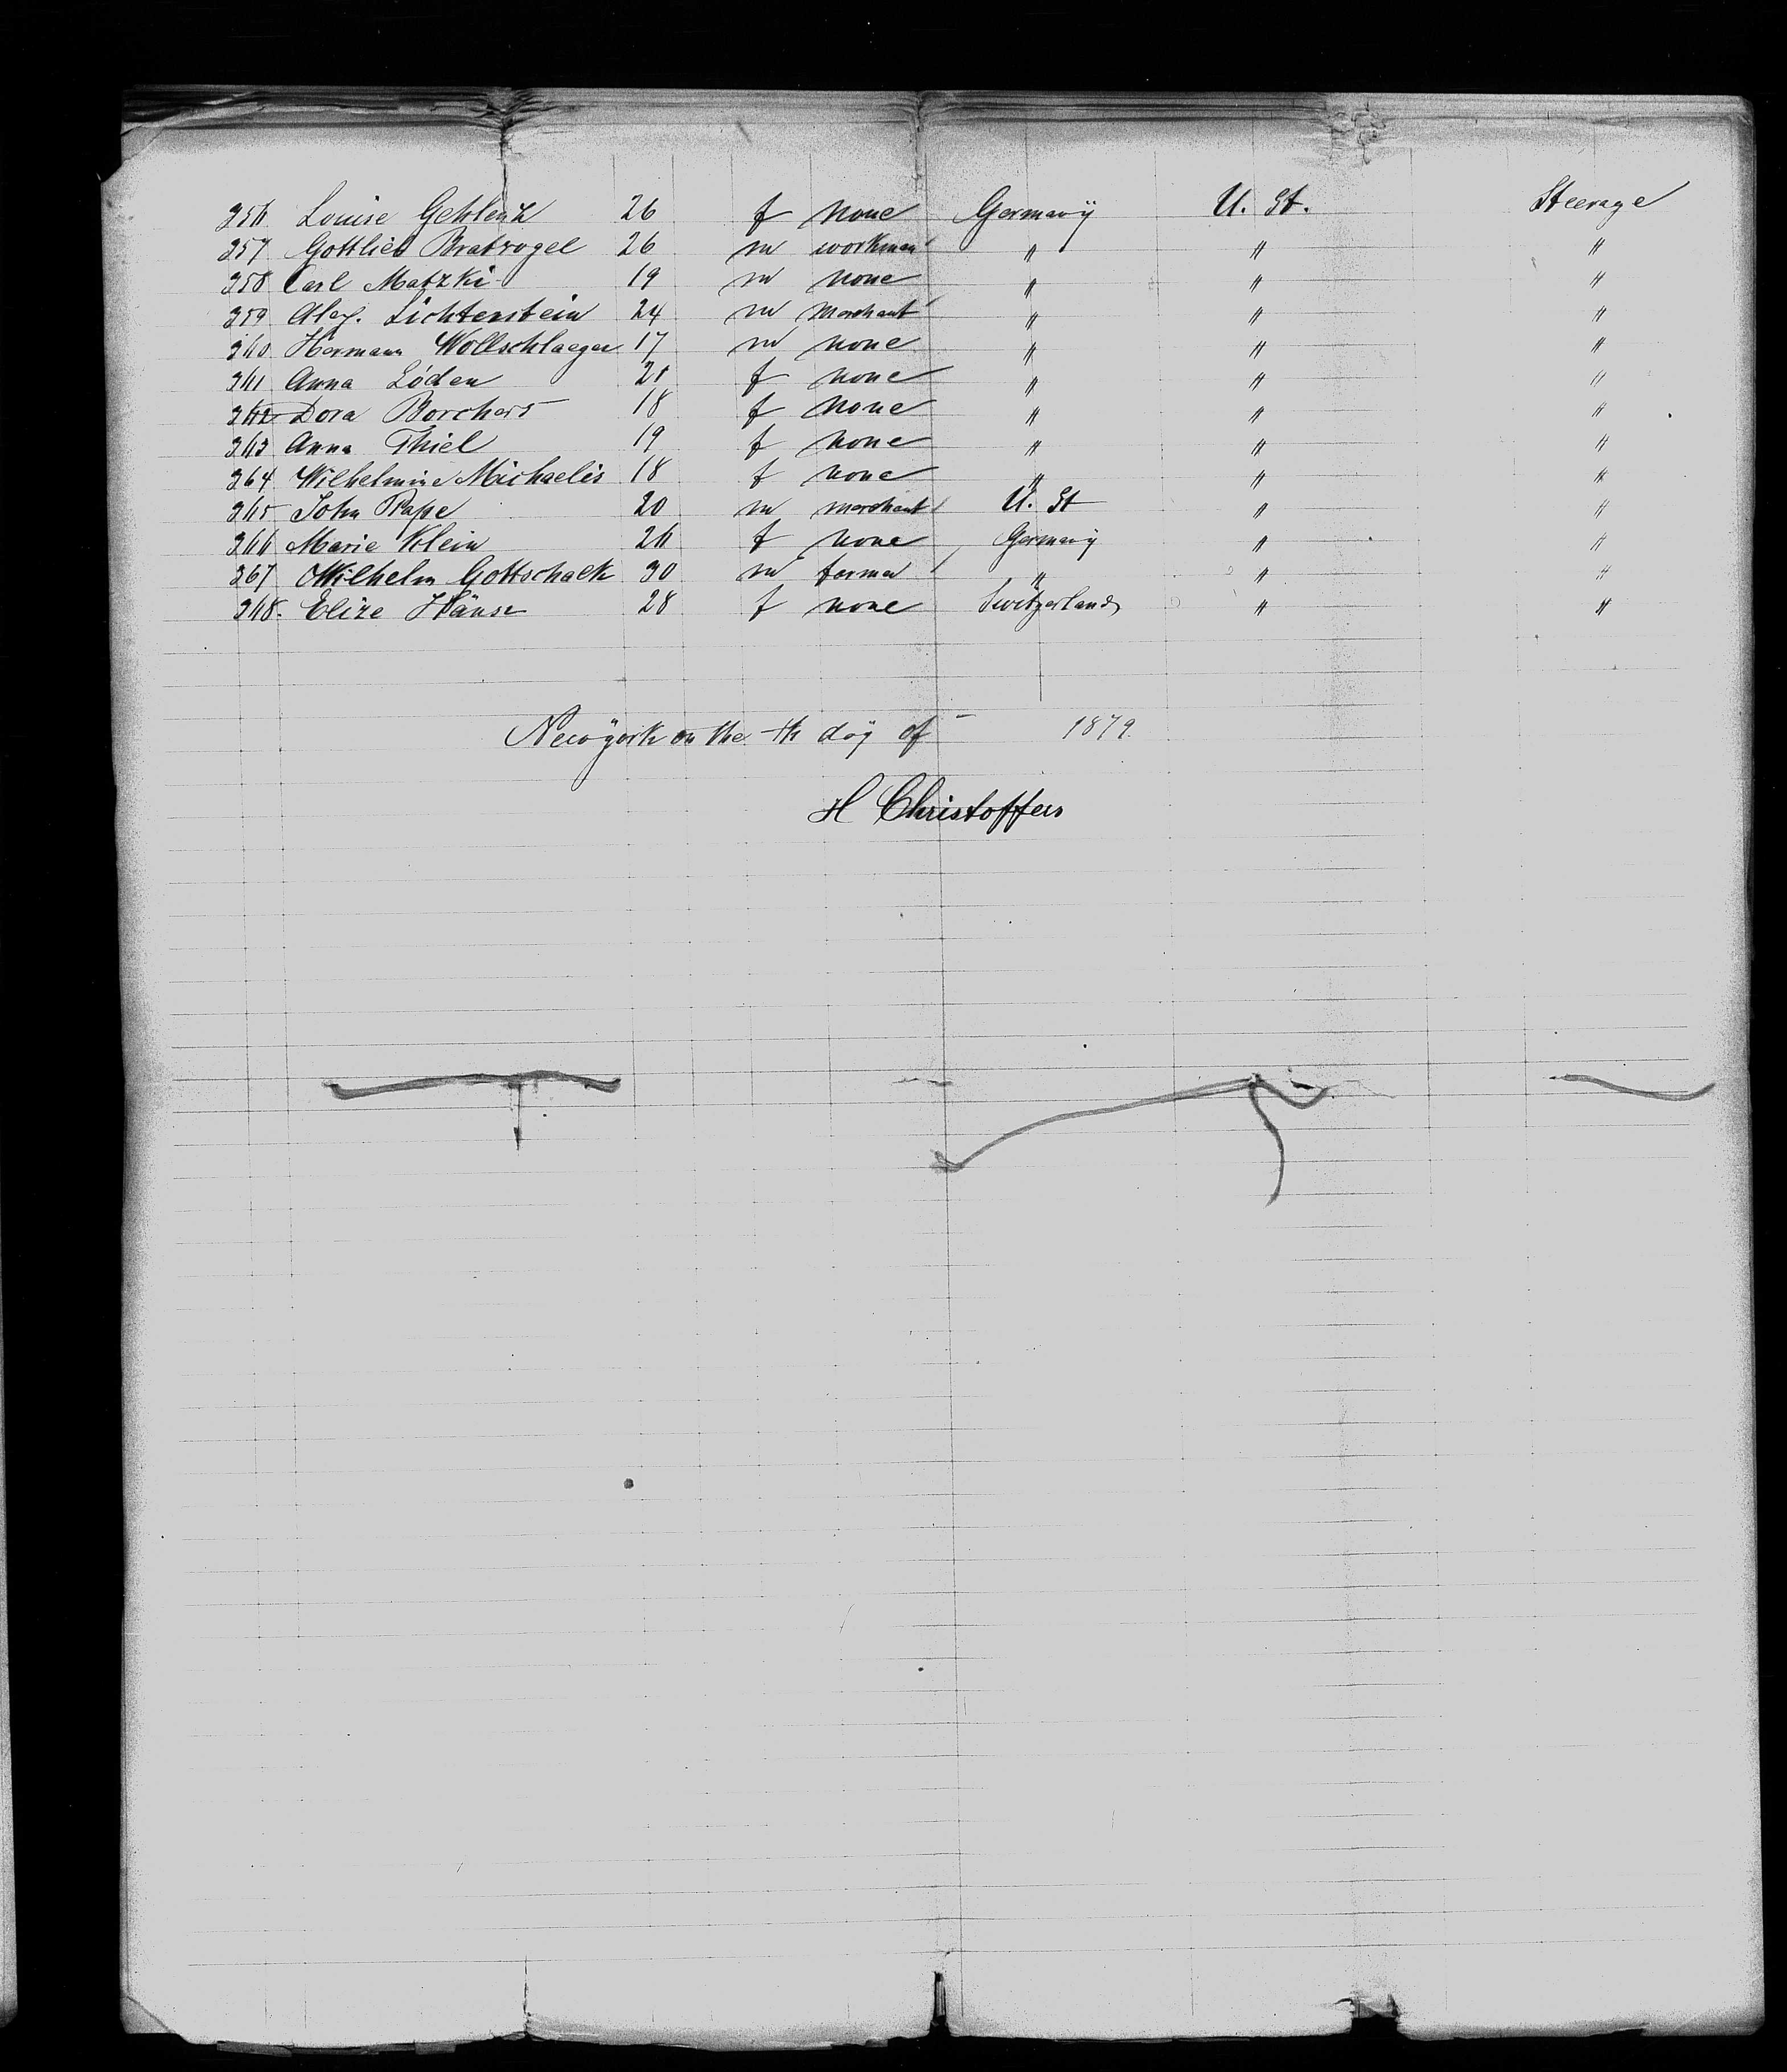 256 Louise 26 f none Germany U. St. Steerage
257 Gottlieb Bratvogel 26 m workman " " "
258 Carl Matzki 19 m none " " "
259 Alex. Lichtenstein 24 m Merchant " " "
260 Hermann Wollschlaeger 17 m none " " "
261 Anna Löden 21 f none " " "
262 Dora Borchers 18 f none " " "
263 Anna Thiel 19 f none " " "
264 Wilhelmine Michaelis 18 f none " " "
265 John Pape 20 m merchant U. St " "
266 Marie Klein 26 f none Germany " "
267 Wilhelm Gottschalk 30 m farmer " " "
268. Elize Hänse 28 f none Switzerland " "
Newyork on the th day of 1879.
H Christoffers